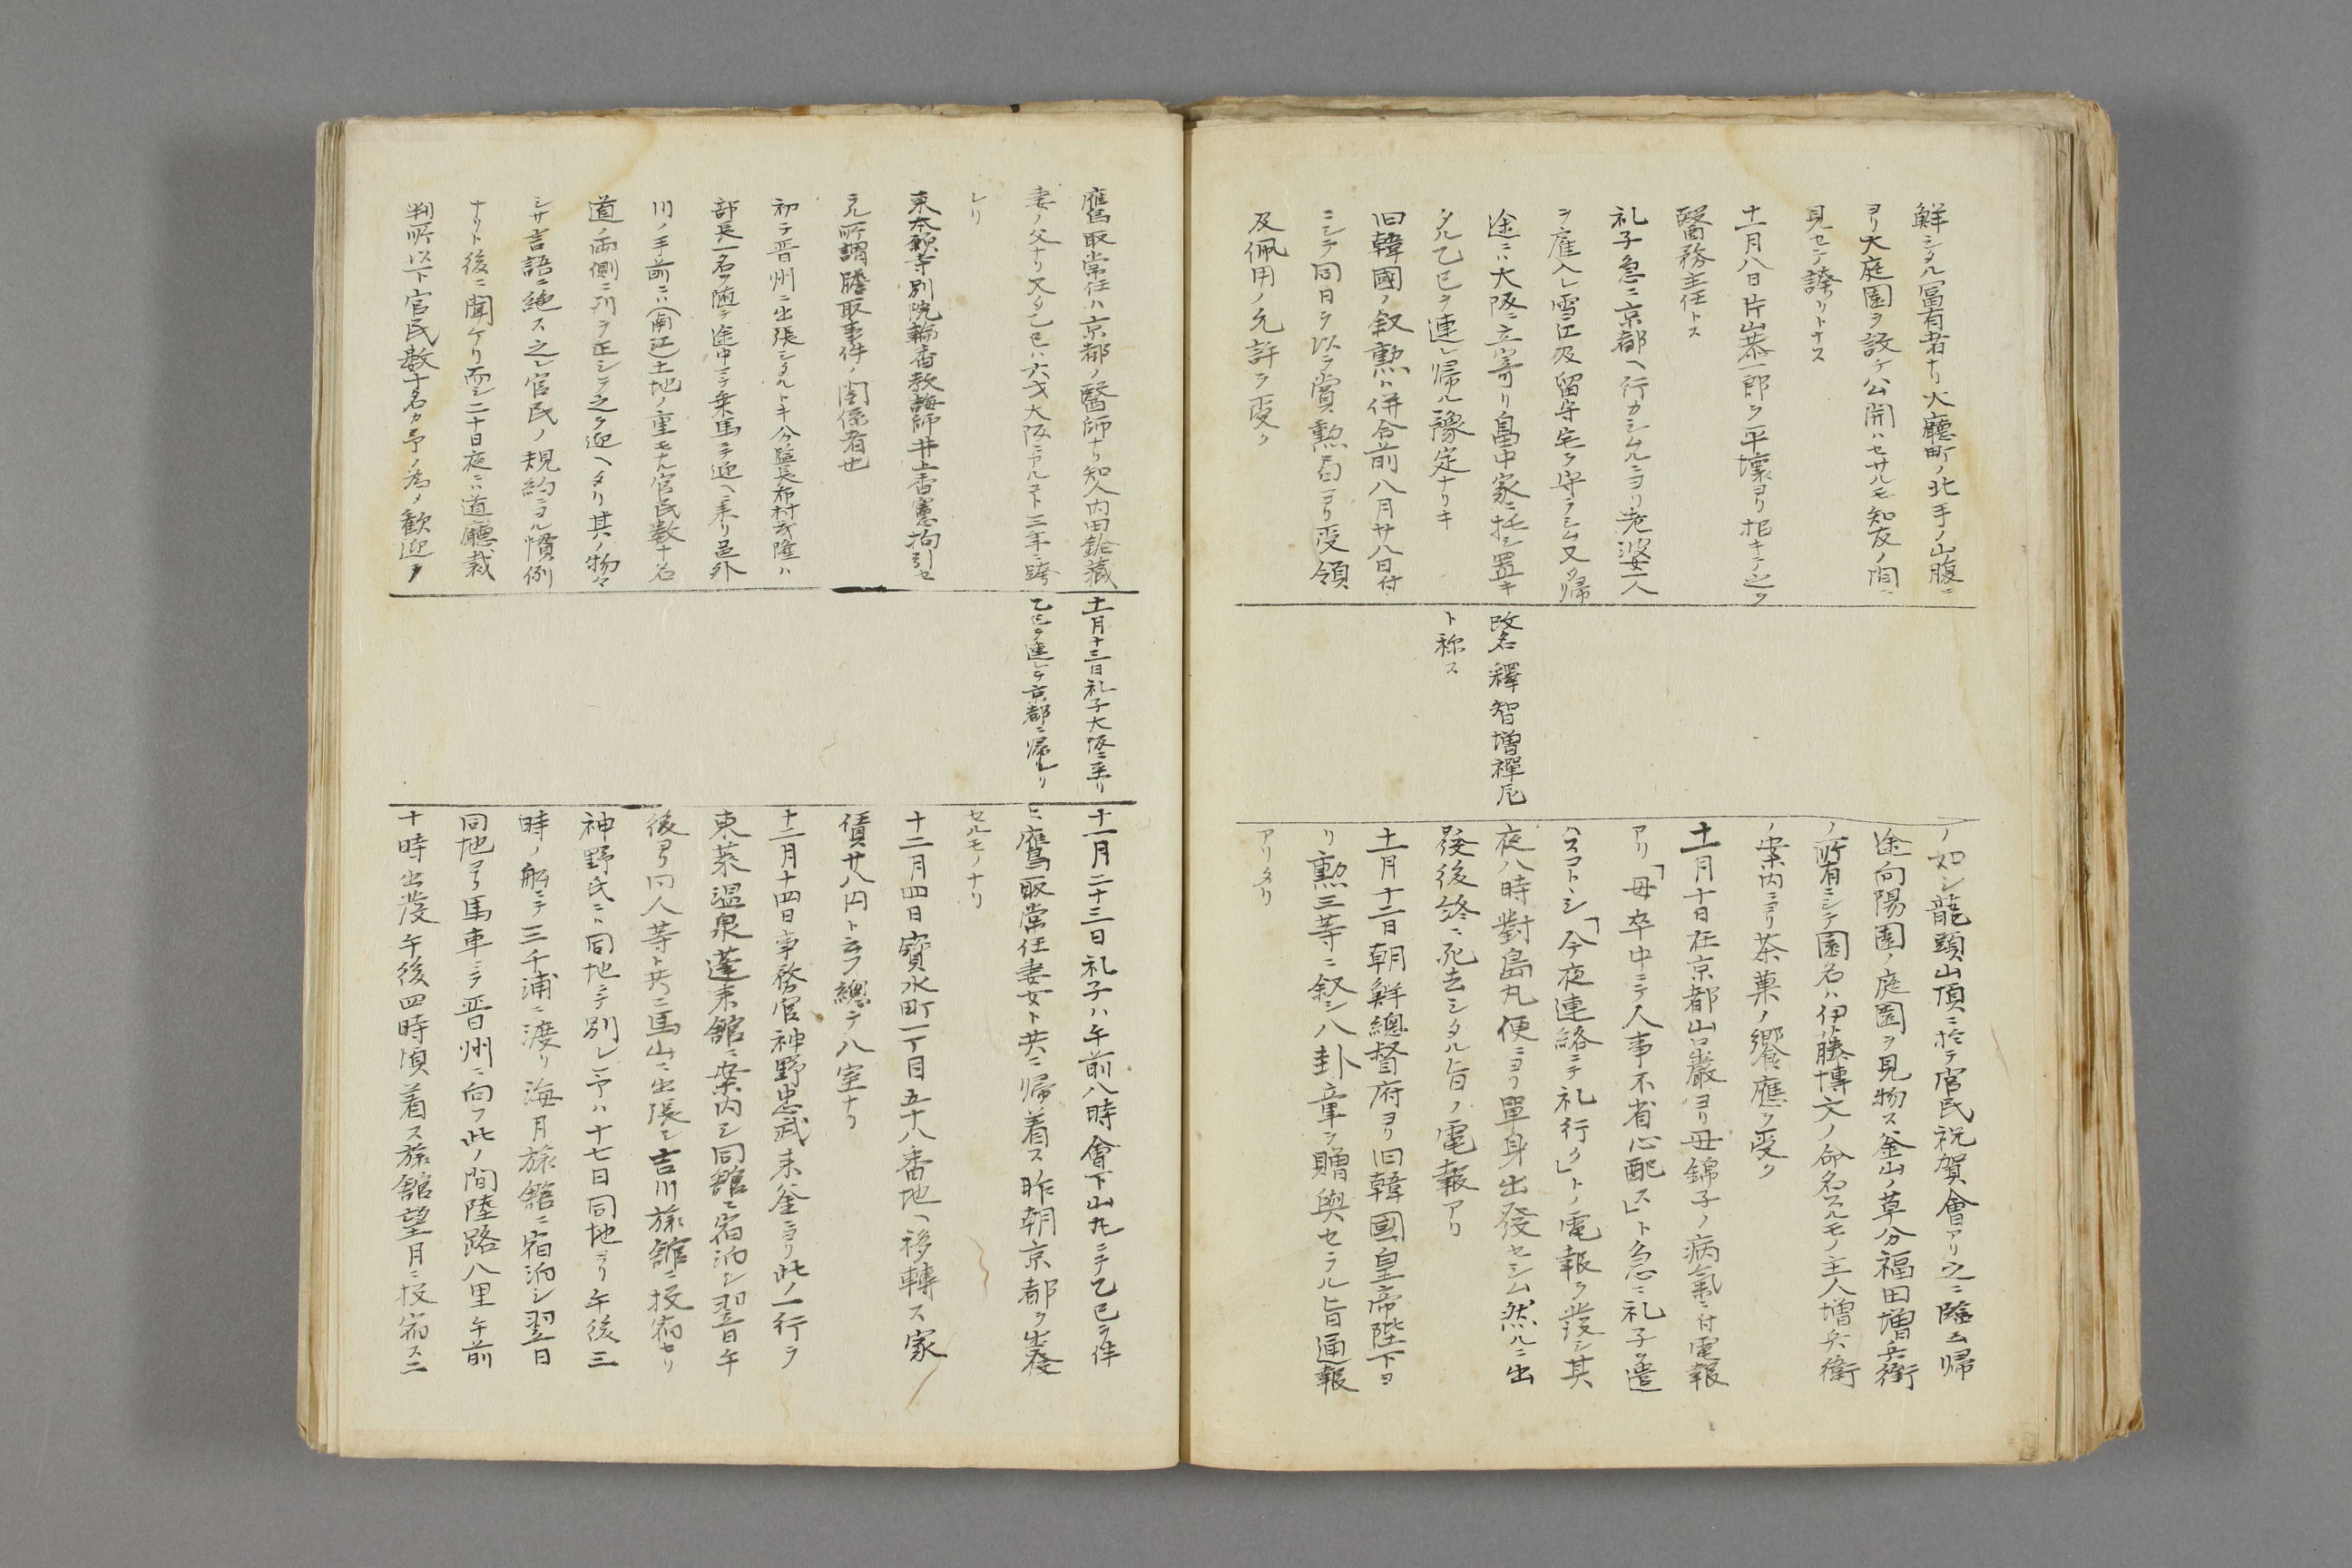 鮮シタル冨有者ナリ大廳町ノ北手ノ山腹ニ
ヨリ大庭園ヲ設ケ公開ハセサルモ知友ノ間ニ
見セテ誇リトナス
十一月八日片山恭一郎ヲ平壤ヨリ招キテ之ヲ
醫務主任トス
礼子急ニ京都ヘ行カシムルニヨリ老婆一人
ヲ雇入レ雪江及留守宅ヲ守ラシム又タ帰
途ニハ大阪ニ立寄リ畠中家ニ托シ置キ
タル乙巳ヲ連レ帰ル豫定ナリキ
旧韓國ノ叙勲ハ併合前八月廿八日付
ニシテ同日ヲ以テ賞勲局ヨリ受領
及佩用ノ允許ヲ受ク
改名釋智増禪尼
ト称ス
ノ如シ龍頭山頂ニ於テ官民祝賀會アリ之ニ臨ム帰
途向陽園ノ庭園ヲ見物ス釜山ノ草分福田増兵衛
ノ所有ニシテ園名ハ伊藤博文ノ命名スルモノ主人増兵衛
ノ案内ニヨリ茶菓ノ饗應ヲ受ク
十一月十日在京都山口巖ヨリ母錦子ノ病氣ニ付電報
アリ「母卒中ニテ人事不省心配ス」ト急ニ礼子ヲ遣
ハスコトシ「今夜連絡ニテ礼行ク」トノ電報ヲ發シ其
夜八時對島丸便ニヨリ單身出發セシム然ルニ出
發後終ニ死去シタル旨ノ電報アリ
十一月十二日朝鮮總督府ヨリ旧韓國皇帝陛下ヨ
リ勲三等ニ叙シ八卦章ヲ贈與セラル旨通報
アリタリ
鷹取常任ハ京都ノ醫師ナリ知人内田鈴藏
妻ノ父ナリ又タ乙巳ハ六才大阪ニアルコト三年ニ跨
レリ
東本願寺別院輪番教誨師井上香憲拘引セ
ラル所謂謄取事件ノ関係者也
初テ晋州ニ出張シタルトキ分監長布村武隆ハ
部長一名ヲ随テ途中ニテ乗馬ニテ迎ヘニ来リ邑外
川ノ手前ニハ(南江)土地ノ重モナル官民数十名
道ノ両側ニ列ヲ正シテ之ヲ迎ヘタリ其ノ物々
シサ言語ニ絶ス之レ官民ノ規約ニヨル慣例
ナリト後ニ聞ケリ而シ二十日夜ニハ道廳、裁
判所以下官民数十名カ予ノ為メ歓迎ヲ
十一月十三日礼子大阪ニ至リ
乙巳ヲ連レテ京都ニ帰レリ
十一月二十三日礼子ハ午前八時會下山丸ニテ乙巳ヲ伴
ヒ鷹取常任妻女ト共ニ帰着ス昨朝京都ヲ出發
セルモノナリ
十二月四日寶水町一丁目五十八番地ヘ移轉ス家
賃廿八円ト云フ總テ八室ナリ
十二月十四日事務官神野忠武来釜ニヨリ此ノ一行ヲ
東莱温泉蓬来館ニ案内シ同館ニ宿泊シ翌日午
後ヨリ同人等ト共ニ馬山ニ出張シ吉川旅館ニ投宿セリ
神野氏ニハ同地ニテ別レ予ハ十七日同地ヨリ午後三
時ノ船ニテ三千浦ニ渡リ海月旅館ニ宿泊シ翌日
同地ヨリ馬車ニテ晋州ニ向フ此ノ間陸路八里午前
十時出發午後四時頃着ス旅館望月ニ投宿ス二